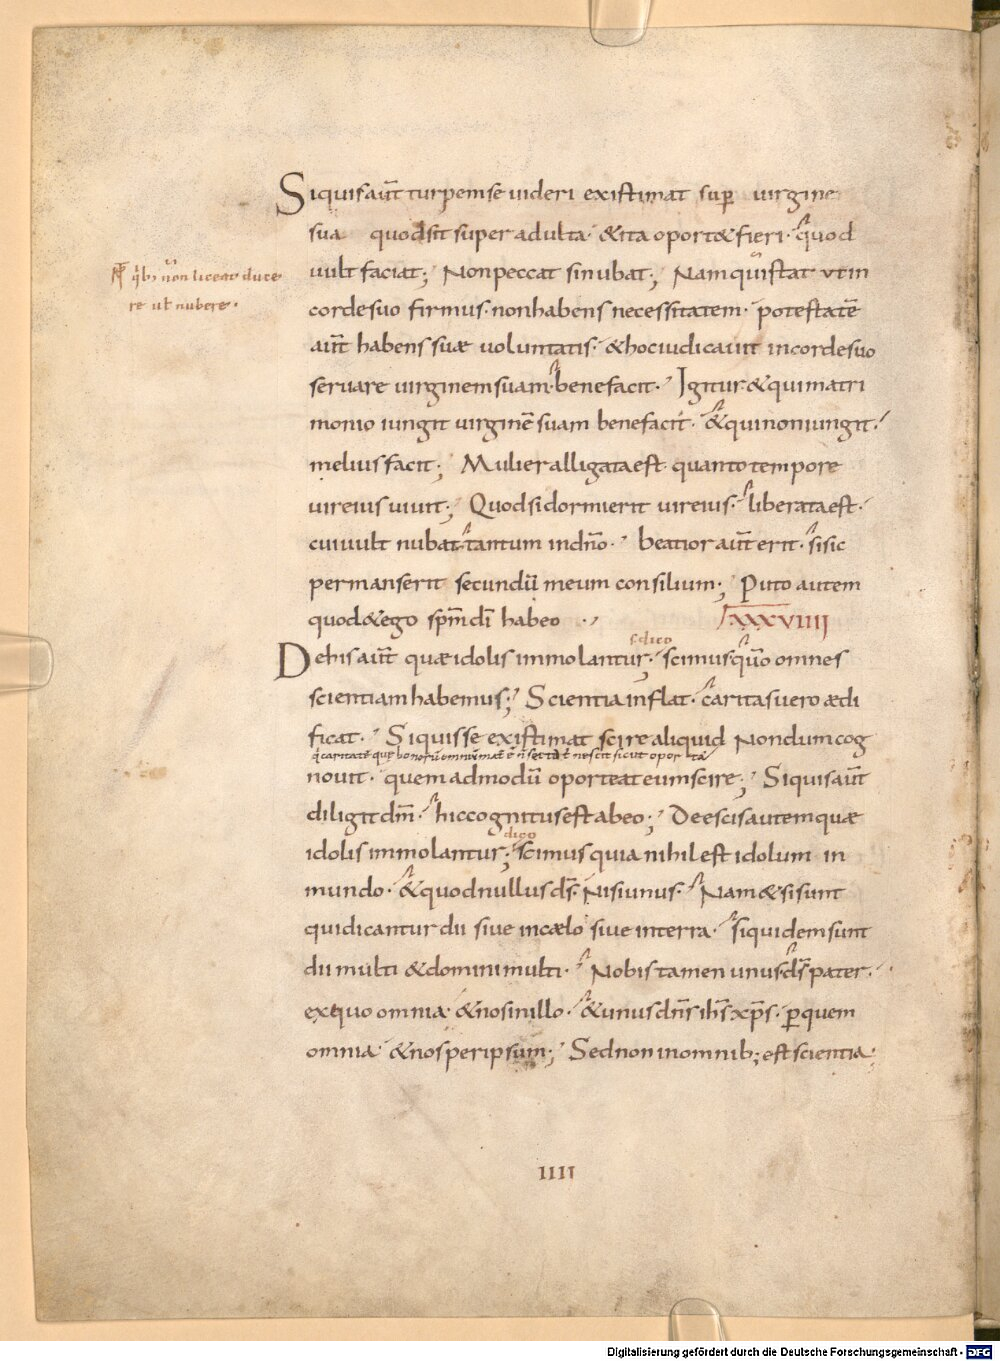 Siquisaut̄ turpemse uideri existimat sup̄ uirgine
sua quodsit superadulta· &ita oport&fieri· quod
uult faciat; Nonpeccat sinubat; Namquistat utin
non liceat duce
re ut nubere·
cordesuo firmus· nonhabens necessitatem· potestatē
aut̄ habens suæ uoluntatis· &hociudicauit incordesuo
seruare uirginemsuam· benefacit· Igitur&quimatri
monio iungit uirginē suam benefacit· &quinoniungit·
meliusfacit; Mulieralligataest quantotempore
uireiusuiuit; Quodsidormierit uireius· liberataest·
cuiuult nubat· tantum indn̄o· beatioraut̄erit· sisic
permanserit secundū meum consilium; Puto autem
quod&ego spm̄dī habeo· XXXVIIII
s. dico
Dehisaut̄ quæidolis immolantur· scimusq̄uo omnes
scientiamhabemus; Scientiainflat· caritasuero ædi
ficat· Siquisse existimat scirealiquid Nondumcog
nescit sicut oportet
nouit· quemadmodū oporteateumscire; Siquisaut̄
diligitdm̄· hiccognitusestabeo; Deescisautemquæ
dico
idolis immolantur; scimusquia nihilest idolum in
mundo· &quodnullusds̄ Nisiunus· Nam&sisunt
quidicanturdii siue incælo siue interra· siquidemsunt
dii multi &dominimulti· Nobistamen unusds̄pater·
exquo omnia &nosinillo· &unusdn̄sih̄sxp̄s· p̄quem
omnia &nosperipsum; Sednoninomnib; estscientia;
IIII
Digitalisierung gefördert durch die Deutsche Forschungsgemeinschaft - DFG